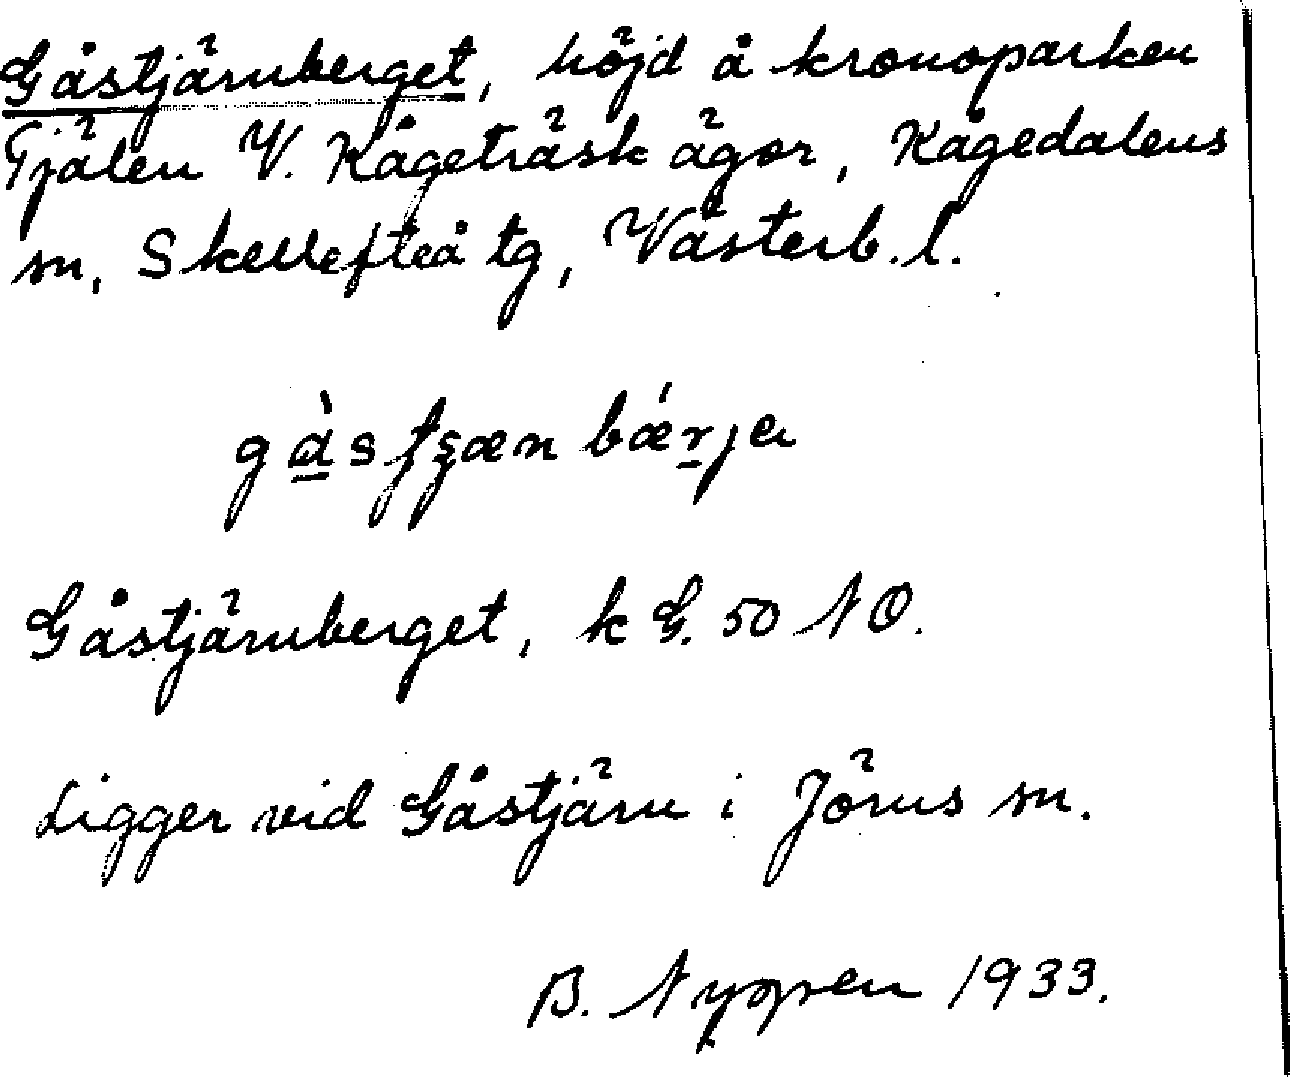 Gåstjärnberget, höjd å kronoparken
Tjälen V. Kågeträsk ägor, Kågedalens
sn, Skellefteå tg, Västerb. l.
Gåstjärnberget, k G. 50 NO.
Ligger vid Gåstjärn i Jörns sn.
B. Nygren 1933.